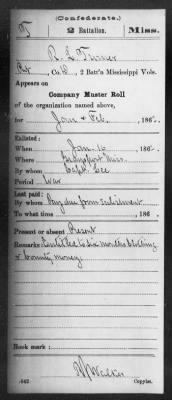 (Confederate.)
T 2 Battalion. Miss.
R. L. Turner
Pvt, Co. D, 2 Batt'n Mississippi Vols.
Appears on
Company Muster Roll
of the organization named above,
for Jan & Feb, 186
Enlisted:
When Jan. 16, 186
Where Miss.
By whom Capt. Lee
Period War
Last paid:
By whom Pay due from enlistment
To what time , 186
Present or absent Present
Remarks: Entitled to six months clothing
& bounty money.
Book mark:
W Walker
(642) Copyist.